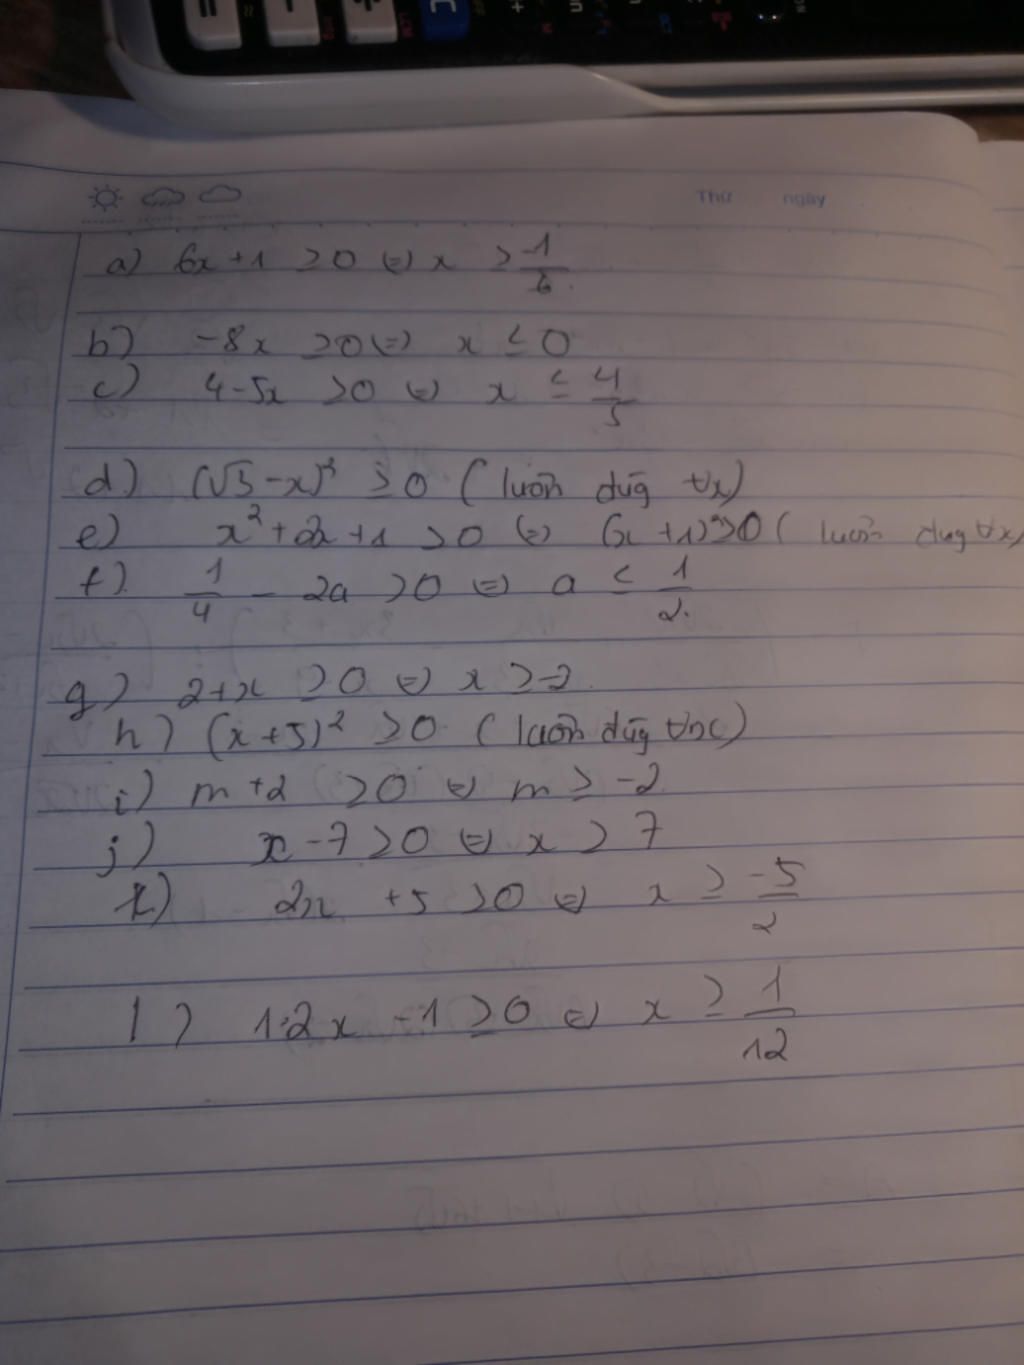 Thứ ngày
a) 6x+1 ≥0 ⇔ x ≥ -1/6
b) -8x ≥0 ⇔ x ≤ 0
c) 4-5x ≥0 ⇔ x ≤ 4/5
d) (√3 -x)² ≥0 ( luôn đúg ∀x)
e) x²+2x+1 ≥0 ⇔ (x +1)²≥0 ( luôn đug ∀x)
f) 1/4 - 2a ≥0 ⇔ a ≤ 1/2
g) 2+x ≥0 ⇔ x ≥-2
h) (x+5)² ≥0 ( luôn đúg ∀x)
i) m +2 ≥0 ⇔ m ≥ -2
j) x -7 ≥0 ⇔ x ≥ 7
k) 2x +5 ≥0 ⇔ x ≥ -5/2
l) 12x -1 ≥0 ⇔ x ≥ 1/12